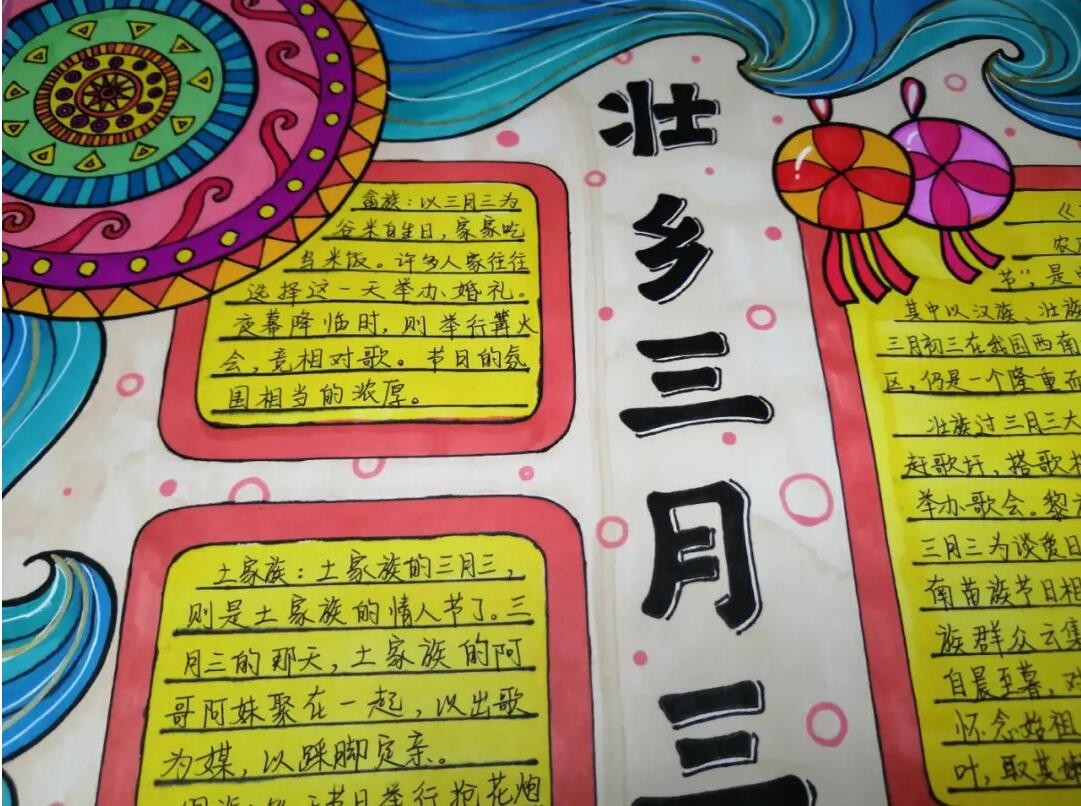 壮乡三月三
畲族：以三月三为
谷米的生日，家家吃
乌米饭。许多人家往往
选择这一天举办婚礼。
夜幕降临时，则举行篝火
会，竞相对歌。节日的氛
围相当的浓厚。
土家族：土家族的三月三，
则是土家族的情人节了。三
月三的那天，土家族的阿
哥阿妹聚在一起，以出歌
为媒，以踩脚定亲。
节日举行抢花炮
《
农
节”，是
其中以汉族、壮族
三月初三在我国西南
区，仍是一个隆重而
壮族过三月三大
赶歌圩，搭歌
举办歌会。黎
三月三为谈爱日
南苗族节日相
族群众云集
自晨至暮，对
怀念始祖
叶，取其